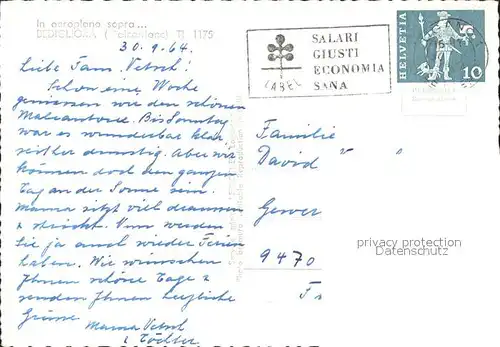 In aeroplano sopra...
BEDIGLIORA (Malcantone) TI 1175
30.9.64.
Liebe Fam. Vetsch!
Schon eine Woche
geniessen wir den schönen
Malcantone. Bis Sonntag
war es wunderbar klar
seither dunstig. Aber wir
können doch den ganzen
Tag an der Sonne sein.
Mama sitzt viel draussen
& strickt. Nun werden
Sie ja auch wieder Ferien
haben. Wir wünschen
Ihnen schöne Tage &
senden Ihnen herzliche
Grüsse
Mama Vetsch
& Töchter
LABEL
SALARI
GIUSTI
ECONOMIA
SANA
HELVETIA
10
Familie
David V
9470
privacy protection
Datenschutz